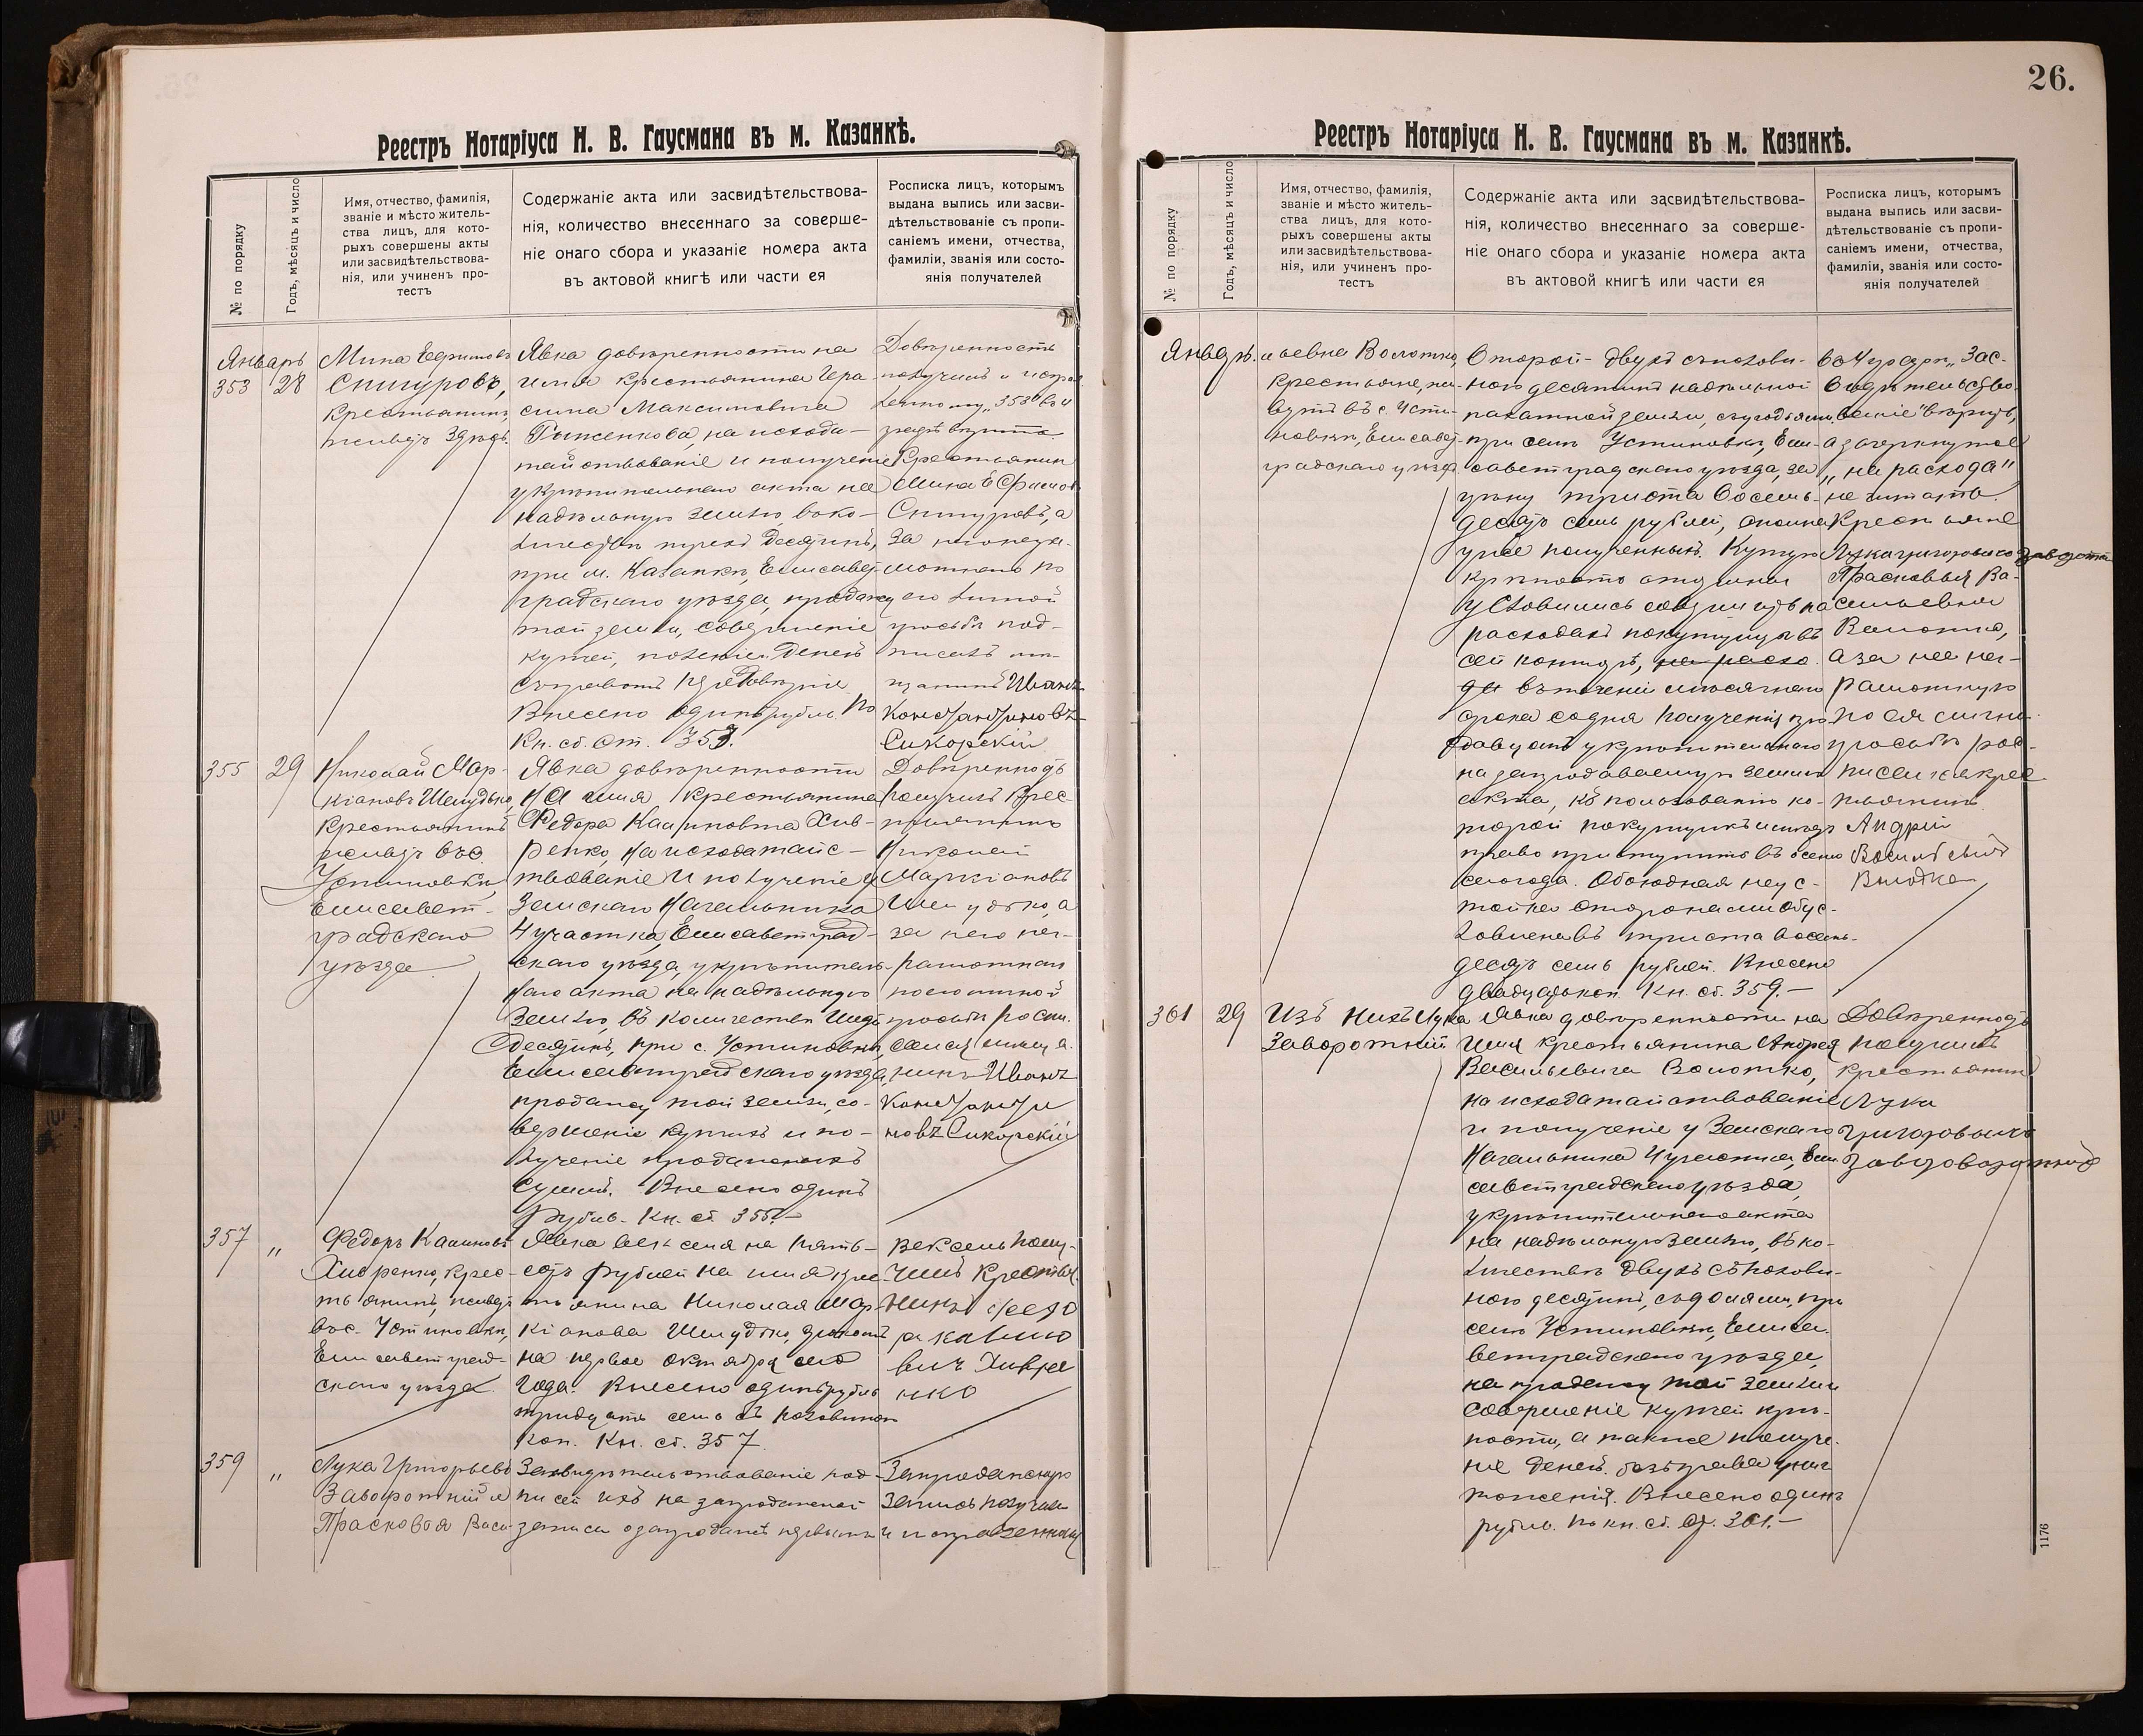 Реестръ Нотаріуса Н. В. Гаусмана въ м. Казанкѣ.
№ по порядку
Годъ, мѣсяцъ и число
Имя, отчество, фамилія,
званіе и мѣсто житель-
ства лицъ, для кото-
рыхъ совершены акты
или засвидѣтельствова-
нія, или учиненъ про-
тестъ
Содержаніе акта или засвидѣтельствова-
нія, количество внесеннаго за соверше-
ніе онаго сбора и указаніе номера акта
въ актовой книгѣ или части ея
Росписка лицъ, которымъ
выдана выпись или засви-
дѣтельствованіе съ пропи-
саніемъ имени, отчества,
фамиліи, званія или состо-
янія получателей
Январь
353
28
Мина Ефимовъ
Снигуровъ,
крестьянинъ,
живетъ здѣсь.
Явка довѣренности на
имя крестьянина Гера-
сима Максимовича
на исхода-
тайствованіе и полученіе
укрѣпительнаго акта на
надѣльную землю, въ ко-
личествѣ трехъ десятинъ,
при м. Казанкѣ, Елисавет-
градскаго уѣзда, продажу
той земли, совершеніе
купчей, полученіе денегъ
съ правомъ передовѣрія.
Внесено одинъ рубль. По
Кн. сб. ст. 353.
Довѣренность
получилъ и исправ-
ленному „353" въ
графѣ вѣрить.
Крестьянинъ
Мина Ефимовъ
Снигуровъ, а
за него негра-
мотнаго по
его личной
просьбѣ под-
писался мѣ-
щанинъ Иванъ
Константиновъ
Сикорскій
355
29
Николай Мар-
кіановъ Шелудько,
крестьянинъ
живетъ въ с.
Устиновкѣ,
Елисавет-
градскаго
уѣзда
Явка довѣренности
на имя крестьянина
Федора Калиновича Хив-
ренко, на исходатайс-
твованіе и полученіе у
Земскаго Начальника
4 участка, Елисаветград-
скаго уѣзда, укрѣпитель-
наго акта на надѣльную
землю, въ количествѣ шести
десятинъ, при с. Устиновкѣ,
Елисаветградскаго уѣзда,
продажу той земли, со-
вершеніе купчихъ и по-
лученіе продажныхъ
суммъ. Внесено одинъ
рубль. Кн. сб. 355.-
Довѣренность
получилъ крес-
тьянинъ
Николай
Маркіановъ
Шелудько, а
за него нег-
рамотнаго
по его личной
просьбѣ роспи-
сался мѣща-
нинъ Иванъ
Константи
новъ Сикорскій
357
„
Федоръ Калиновъ
Хивренко, крес-
тьянинъ, живетъ
въ с. Устиновкѣ,
Елисаветград-
скаго уѣзда.
Явка векселя на пять-
сотъ рублей на имя крес-
тьянина Николая Мар-
кіанова Шелудько, срокомъ
на первое октября сего
года. Внесено одинъ рубль
тридцать семь съ половиною
коп. Кн. сб. 357.
Вексель полу-
чилъ Крестья-
нинъ Федо
ръ калино
вич Хивре
нко
359
„
Лука Григорьевъ
Заворотній и
Прасковья Васи-
Засвидѣтельствованіе под-
писей ихъ на запродажной
записи о запродажѣ первымъ
Запродажную
запись получили
и исправленному
26.
Реестръ Нотаріуса Н. В. Гаусмана въ м. Казанкѣ.
№ по порядку
Годъ, мѣсяцъ и число
Имя, отчество, фамилія,
званіе и мѣсто житель-
ства лицъ, для кото-
рыхъ совершены акты
или засвидѣтельствова-
нія, или учиненъ про-
тестъ
Содержаніе акта или засвидѣтельствова-
нія, количество внесеннаго за соверше-
ніе онаго сбора и указаніе номера акта
въ актовой книгѣ или части ея
Росписка лицъ, которымъ
выдана выпись или засви-
дѣтельствованіе съ пропи-
саніемъ имени, отчества,
фамиліи, званія или состо-
янія получателей
Январь.
льевна Волотко,
крестьяне, жи-
вутъ въ с. Усти-
новкѣ, Елисавет-
градскаго уѣзда
второй - двухъ съ полови-
ною десятинъ надѣльной
пахатной земли, съ угодьями,
при селѣ Устиновкѣ, Ели-
саветградскаго уѣзда, за
цѣну триста восемь-
десятъ семь рублей, сполна
уже полученныхъ. Купчую
крѣпость стороны
условились совершить на
расходахъ покупщицы въ
сей конторѣ, на расхо
да въ теченіи мѣсячнаго
срока со дня полученія про-
давцомъ укрѣпительнаго
на запродаваемую землю
акта, къ пользованію ко-
торой покупщикъ имѣетъ
право приступить въ осень
сего года. Обоюдная неус-
тойка сторонами обус-
ловлена въ триста восемь-
десятъ семь рублей. Внесено
двадцать коп. Кн. сб. 359.-
во 4 графѣ „Зас-
видѣтельство-
ваніе" вѣрить,
а зачеркнутое
„на расхода"
не читать.
Крестьяне
Лука григоровичо
Прасковья Ва-
сильевна
Волотко,
а за нее нег-
рамотную
по ея лично
просьбѣ рос-
писался крес
тьянинъ
Андрій
361
29
Изъ нихъ Лука
Заворотній
Явка довѣренности на
имя крестьянина Андрея
Васильевича Волотко,
на исходатайствованіе
и полученіе у Земскаго
Начальника 4 участка, Ели-
саветградскаго уѣзда,
укрѣпительнаго акта
на надѣльную землю, въ ко-
личествѣ двухъ съ полови-
ною десятинъ, при
селѣ Устиновкѣ, Елиса-
ветградскаго уѣзда,
на продажу той земли и
совершеніе купчей крѣ-
пости, а также получе-
ніе денегъ. безъ права унич
тоженія. Внесено одинъ
рубль. По кн. сб. ст. 361.-
Довѣренность
получилъ
крестьянинъ
Лука
григоровичъ
1176